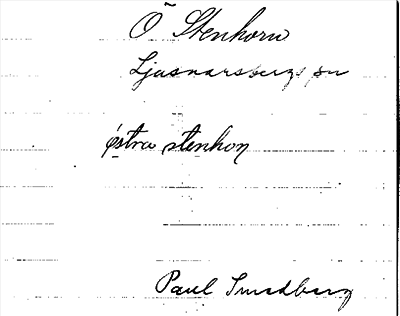 Ö Stenhorn
Ljusnarsbergs sn
östra stenhon
Paul Smedberg